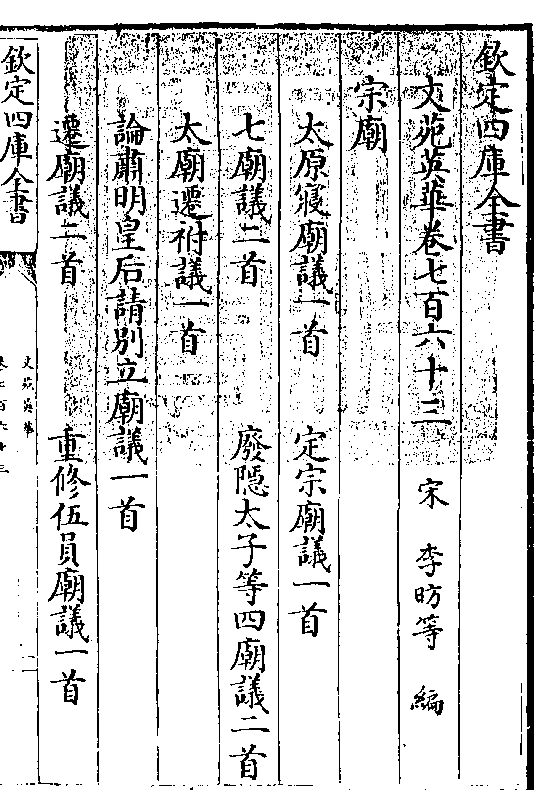 欽定四庫全書
文苑英華卷七百六十三　宋　李昉等　編
宗廟
太原寢廟議一首　定宗廟議一首
七廟議二首　廢隱太子等四廟議二首
太廟遷祔議一首
論肅明皇后請別立廟議一首
遷廟議二首　重修伍員廟議一首
欽定四庫全書
文苑英華
卷七百六十三
一